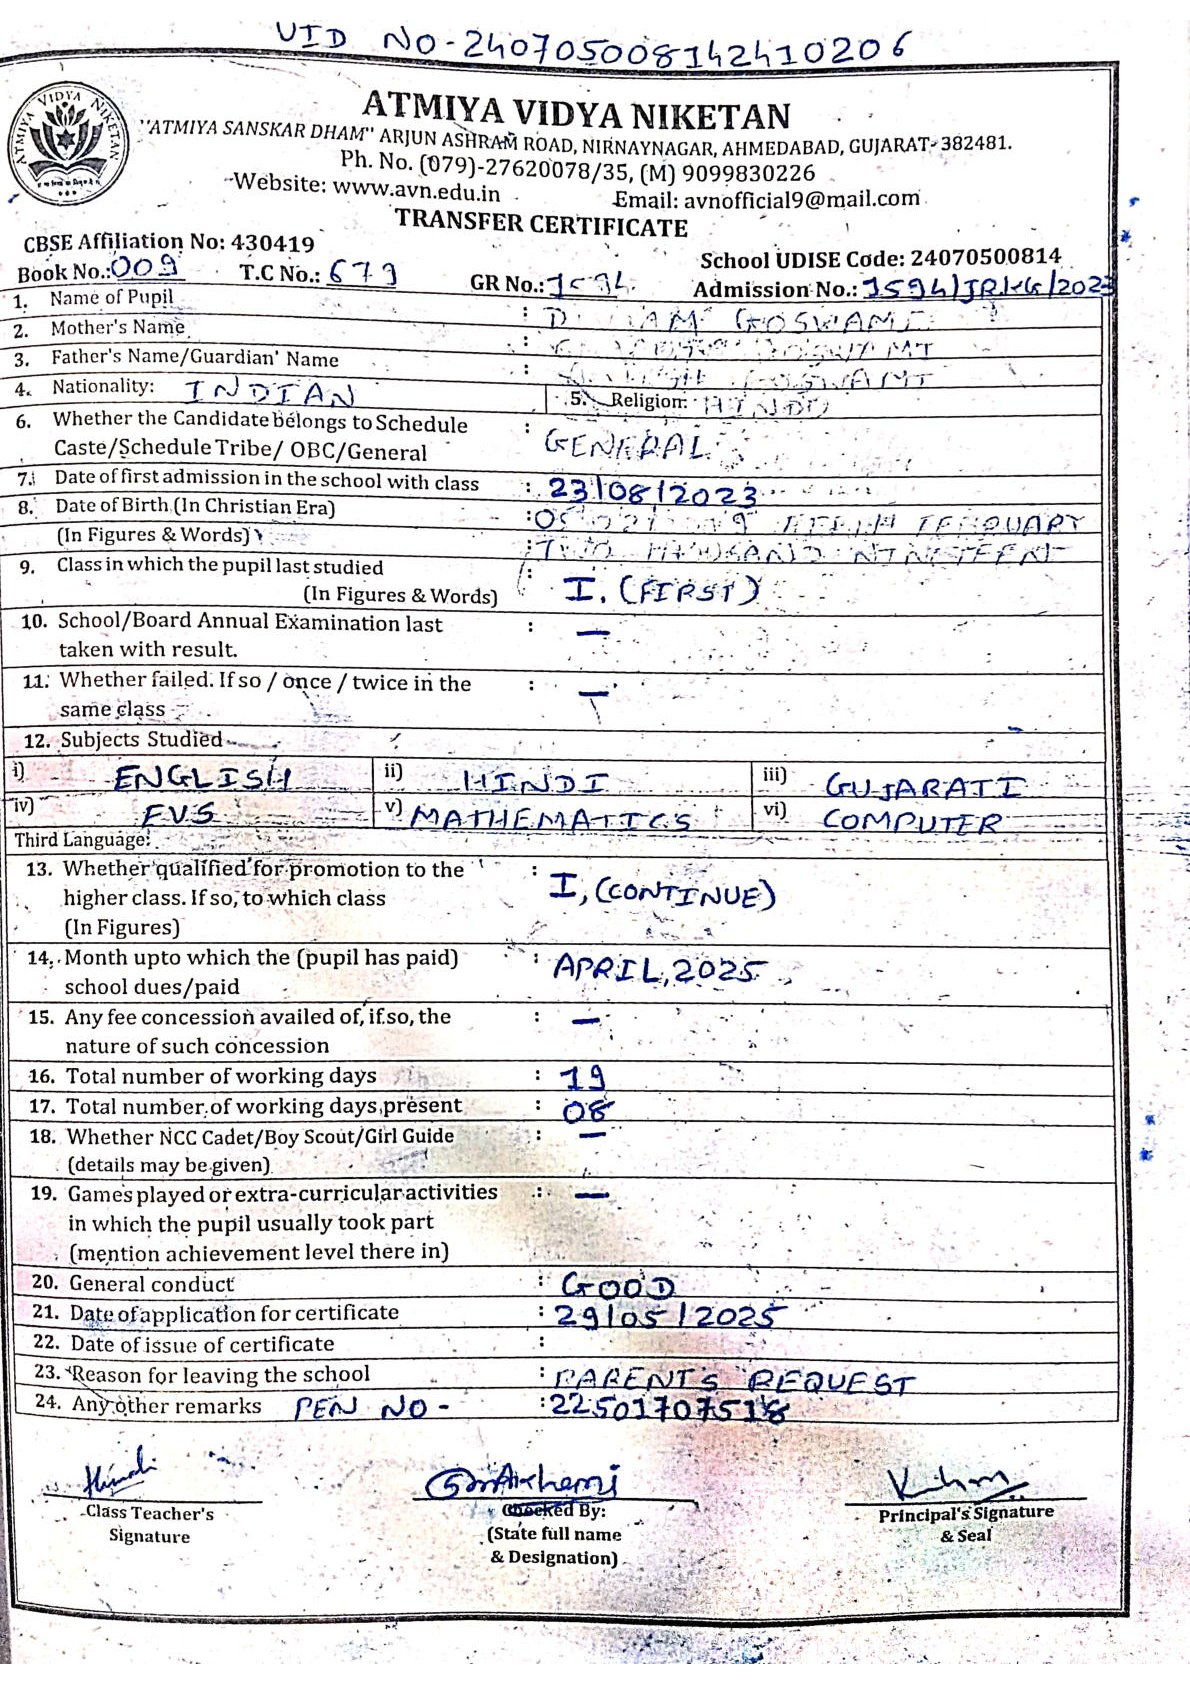 UID NO-240705008142410206
ATMIYA VIDYA NIKETAN
ATMIYA VIDYA NIKETAN
"ATMIYA SANSKAR DHAM" ARJUN ASHRAM ROAD, NIRNAYNAGAR, AHMEDABAD, GUJARAT-382481.
Ph. No. (079)-27620078/35, (M) 9099830226
Website: www.avn.edu.in Email: avnofficial9@mail.com
TRANSFER CERTIFICATE
CBSE Affiliation No: 430419 School UDISE Code: 24070500814
Book No.: 009 T.C No.: 679 GR No.: 1594 Admission No.: 1594/JR.KG/2023
1. Name of Pupil : GOSWAMI
2. Mother's Name : GOSWAMI
3. Father's Name/Guardian' Name : GOSWAMI
4. Nationality: INDIAN 5. Religion: HINDU
6. Whether the Candidate belongs to Schedule : GENERAL
Caste/Schedule Tribe/ OBC/General
7. Date of first admission in the school with class : 23/08/2023
8. Date of Birth (In Christian Era) :
(In Figures & Words) : TWO THOUSAND NINETEEN
9. Class in which the pupil last studied : I. (FIRST)
(In Figures & Words)
10. School/Board Annual Examination last : —
taken with result.
11. Whether failed. If so / once / twice in the : —
same class
12. Subjects Studied
i) ENGLISH ii) HINDI iii) GUJARATI
iv) EVS v) MATHEMATICS vi) COMPUTER
Third Language:
13. Whether qualified for promotion to the : I, (CONTINUE)
higher class. If so, to which class
(In Figures)
14. Month upto which the (pupil has paid) : APRIL, 2025
school dues/paid
15. Any fee concession availed of, if so, the : —
nature of such concession
16. Total number of working days : 19
17. Total number of working days present : 08
18. Whether NCC Cadet/Boy Scout/Girl Guide : —
(details may be given)
19. Games played or extra-curricular activities : —
in which the pupil usually took part
(mention achievement level there in)
20. General conduct : GOOD
21. Date of application for certificate : 29/05/2025
22. Date of issue of certificate :
23. Reason for leaving the school : PARENT'S REQUEST
24. Any other remarks PEN NO- : 22501707518
Class Teacher's Checked By: Principal's Signature
Signature (State full name & Seal
& Designation)